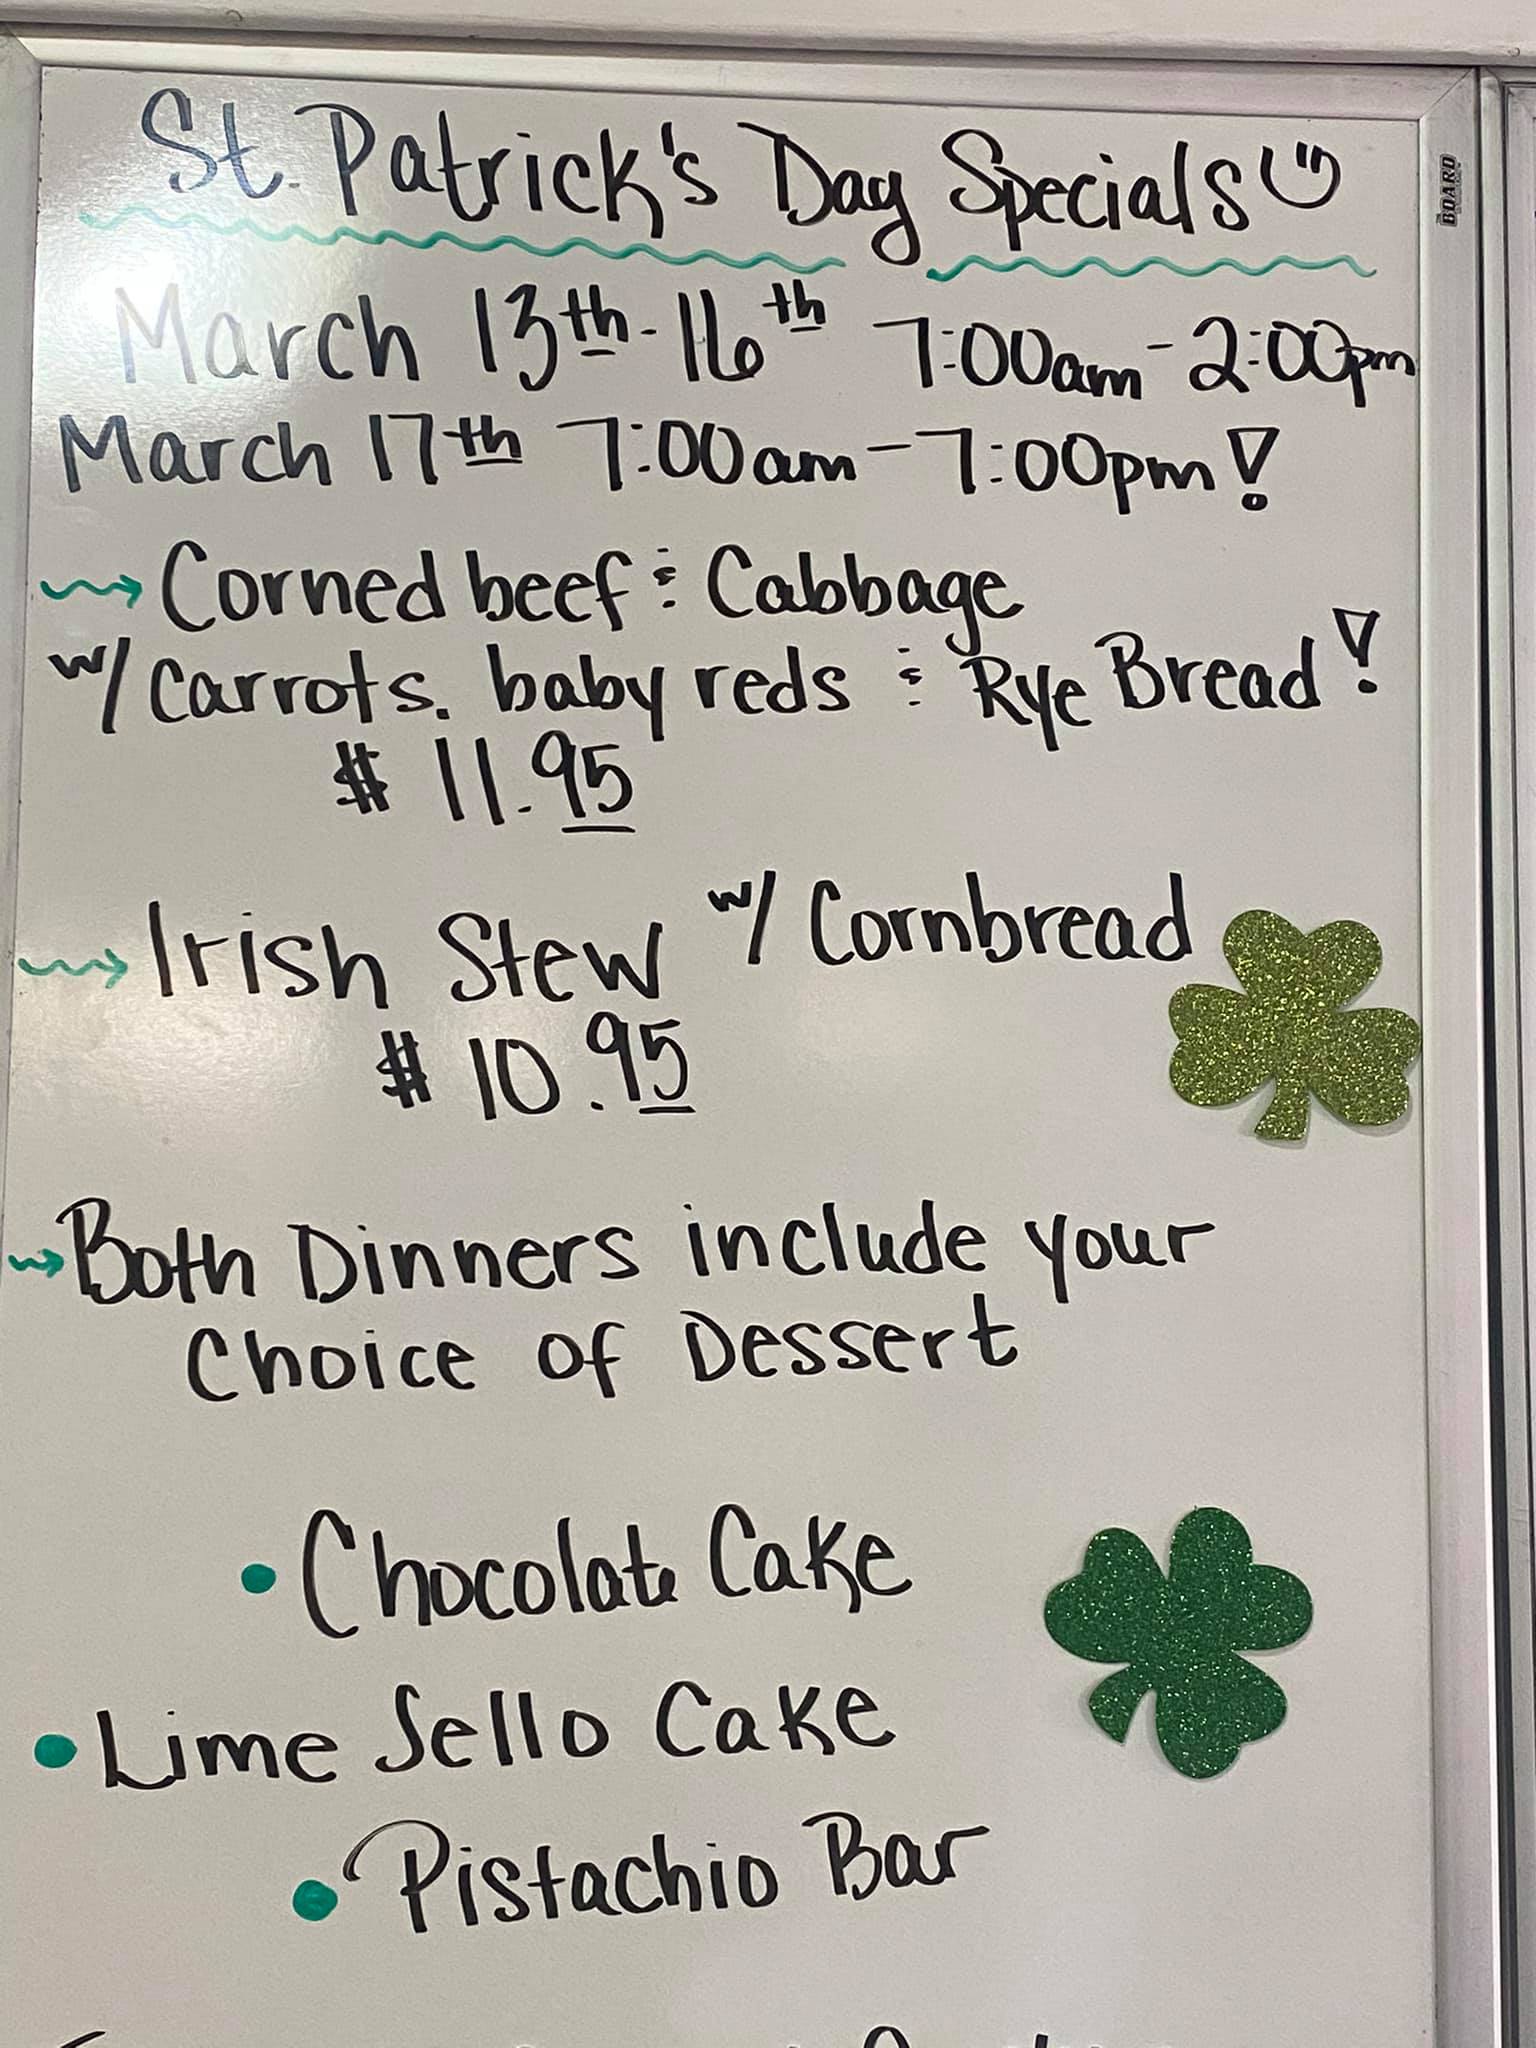 St. Patrick's Day Specials
March 13th - 16th 7:00am - 2:00pm
March 17th 7:00am - 7:00pm!
Corned beef & Cabbage
w/ Carrots. baby reds & Rye Bread!
$ 11.95
Irish Stew w/ Cornbread
$ 10.95
Both Dinners include your
Choice of Dessert
• Chocolate Cake
• Lime Jello Cake
• Pistachio Bar
BOARD